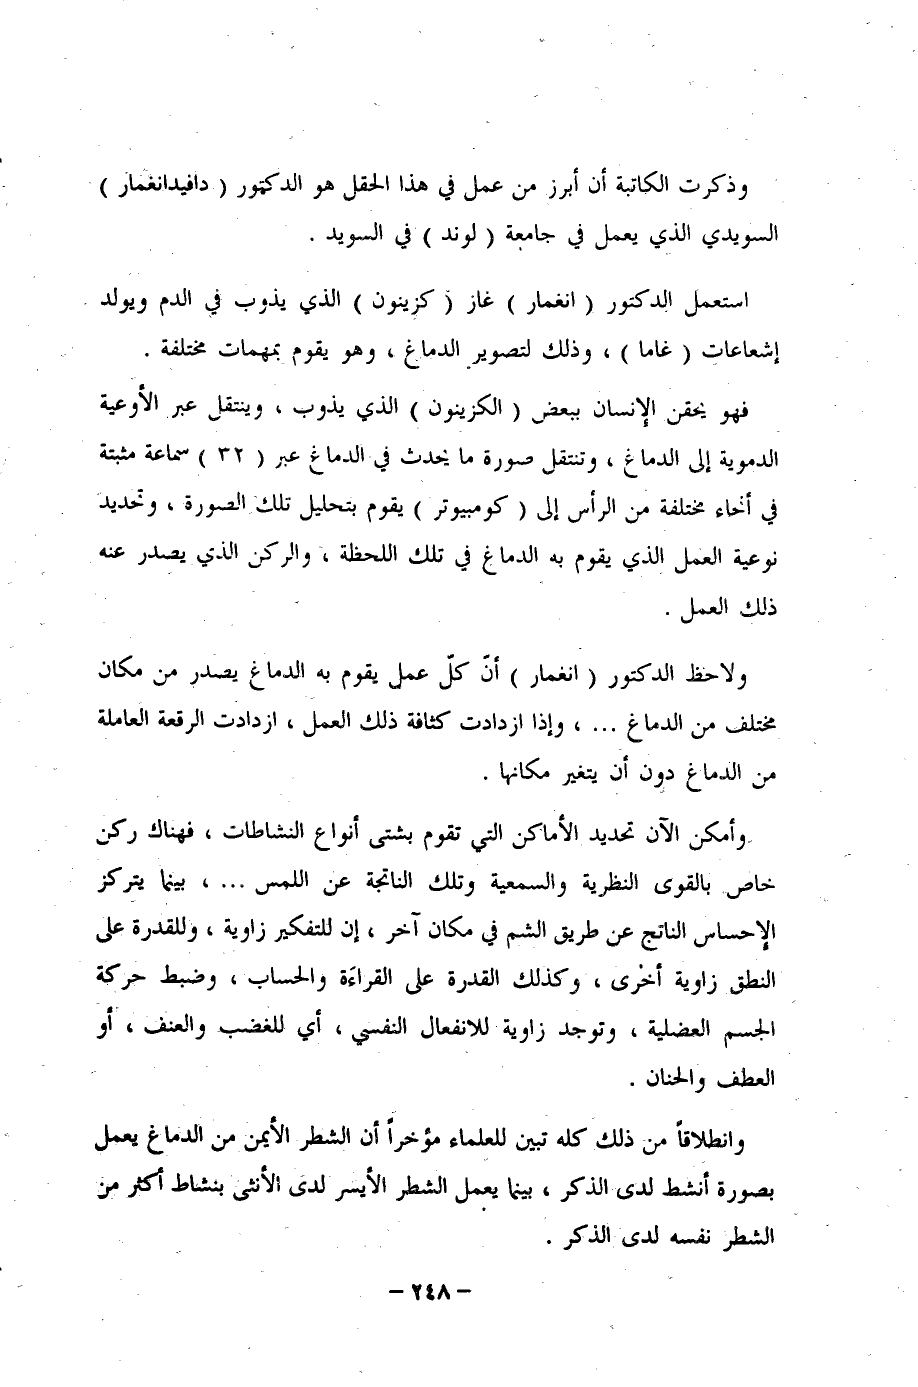 وذكرت الكاتبة أن أبرز من عمل في هذا الحقل هو الدكتور ( دافيدانغمار )
السويدي الذي يعمل في جامعة ( لوند ) في السويد .
استعمل الدكتور ( انغمار ) غاز ( كزينون ) الذي يذوب في الدم ويولد
إشعاعات ( غاما ) ، وذلك لتصوير الدماغ ، وهو يقوم بمهمات مختلفة .
فهو يحقن الإنسان ببعض ( الكزينون ) الذي يذوب ، وينتقل عبر الأوعية
الدموية إلى الدماغ ، وتنتقل صورة ما يحدث في الدماغ عبر ( ٣٢ ) سماعة مثبتة
في أنحاء مختلفة من الرأس إلى ( كومبيوتر ) يقوم بتحليل تلك الصورة ، وتحديد
نوعية العمل الذي يقوم به الدماغ في تلك اللحظة ، والركن الذي يصدر عنه
ذلك العمل .
ولاحظ الدكتور ( انغمار ) أنّ كلّ عمل يقوم به الدماغ يصدر من مكان
مختلف من الدماغ ... ، وإذا ازدادت كثافة ذلك العمل ، ازدادت الرقعة العاملة
من الدماغ دون أن يتغير مكانها .
وأمكن الآن تحديد الأماكن التي تقوم بشتى أنواع النشاطات ، فهناك ركن
خاص بالقوى النظرية والسمعية وتلك الناتجة عن اللمس ... ، بينما يتركز
الإحساس الناتج عن طريق الشم في مكان آخر ، إن للتفكير زاوية ، وللقدرة على
النطق زاوية أخرى ، وكذلك القدرة على القراءَة والحساب ، وضبط حركة
الجسم العضلية ، وتوجد زاوية للانفعال النفسي ، أي للغضب والعنف ، أو
العطف والحنان .
وانطلاقاً من ذلك كله تبين للعلماء مؤخراً أن الشطر الأيمن من الدماغ يعمل
بصورة أنشط لدى الذكر ، بينما يعمل الشطر الأيسر لدى الأنثى بنشاط أكثر من
الشطر نفسه لدى الذكر .
- ٢٤٨ -